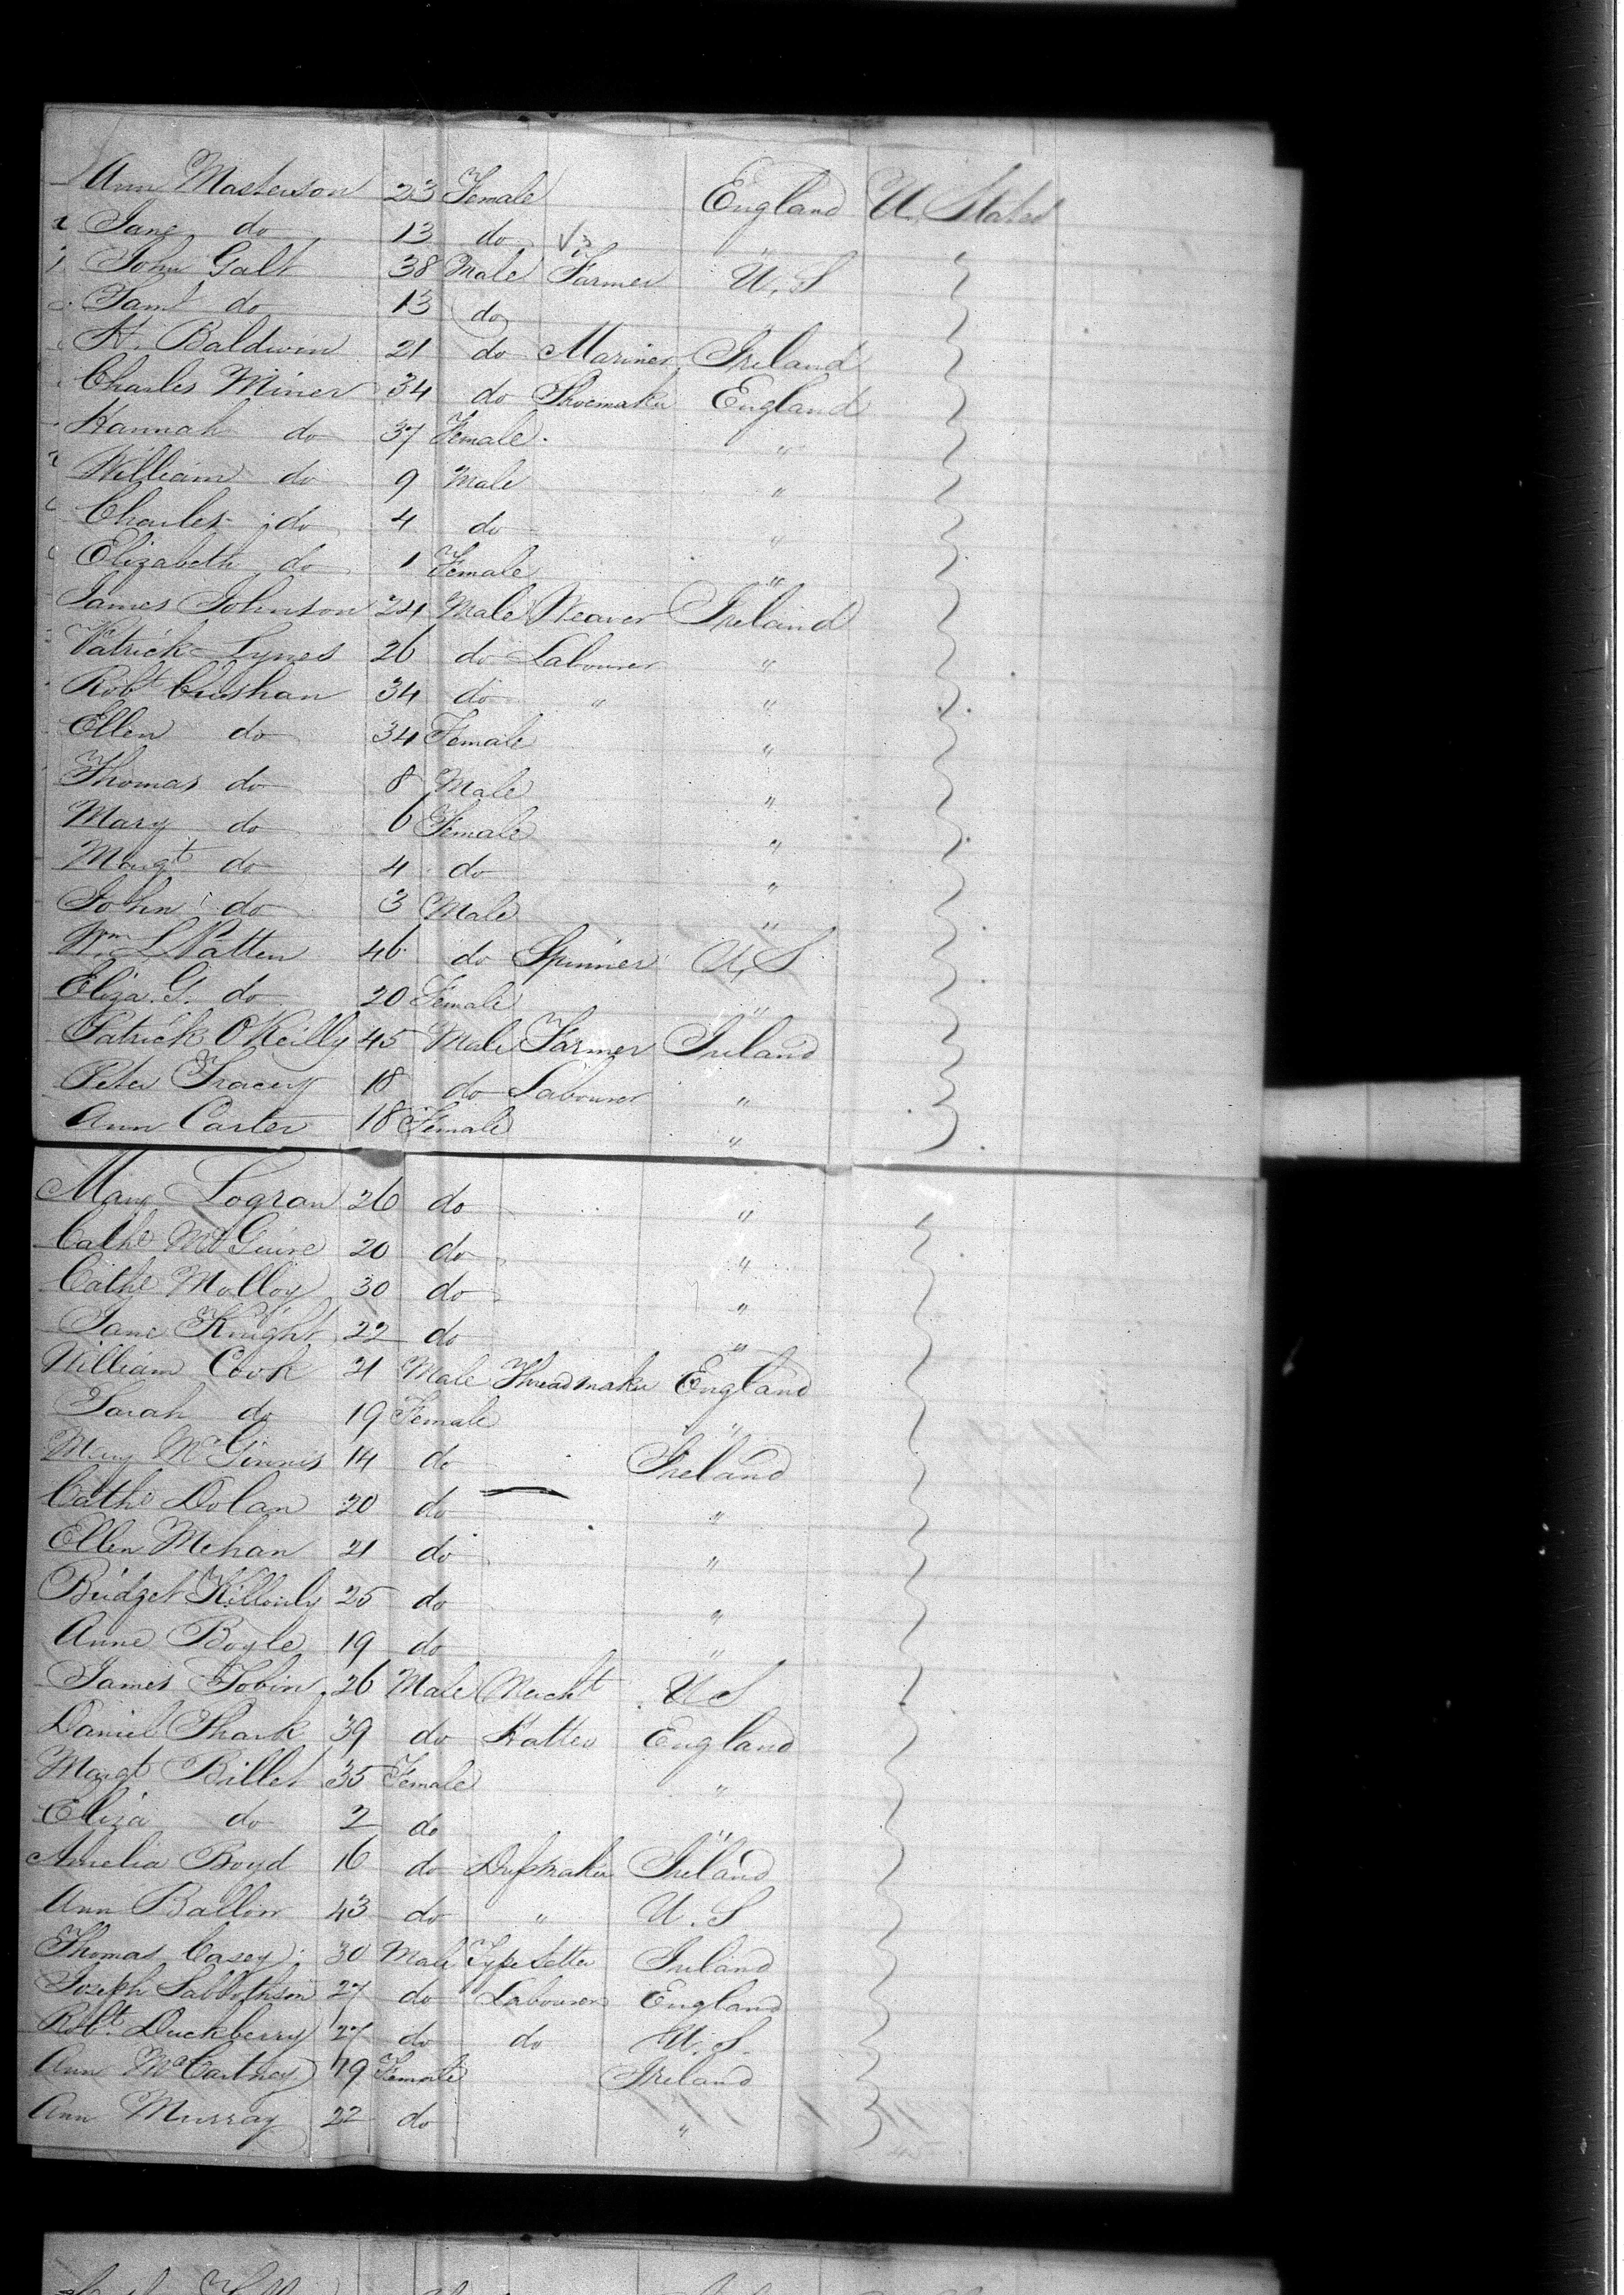 Ann Masterson 23 Female England U. States
Jane do 13 do "
John Galt 38 Male Farmer U. S "
Saml do 13 do
H. Baldwin 21 do Mariner Ireland
Charles Miner 34 do Shoemaker England
Hannah do 37 Female "
William do 9 Male "
Charles do 4 do "
Elizabeth do 1 Female "
James Johnson 24 Male Weaver Ireland
Patrick Lynes 26 do Labourer "
Robt 34 do " "
Ellen do 34 Female "
Thomas do 8 Male "
Mary do 6 Female "
Margt do 4 do "
John do 3 Male "
Wm L Patten 46 do Spinner U, S
Eliza. G. do 20 Female "
Patrick O'Reilly 45 Male Farmer Ireland
Peter Tracey 18 do Labourer "
Ann Carter 18 Female "
Mary Logran 26 do "
Cathe McGuire 20 do "
Cathe Molloy 30 do "
Jane Knight 22 do "
William Cook 21 Male Threadmaker England
Sarah do 19 Female "
Mary McGinnis 14 do Ireland
Cathe Dolan 20 do "
Ellen Mehan 21 do "
Bridget 25 do "
Anne Boyle 19 do "
James Tobin 26 Male Mercht U S
Daniel Shark 39 do Hatter England
Margt Biller 35 Female "
Eliza do 2 do "
Amelia Boyd 16 do Dressmaker Ireland
Ann Ballon 43 do " U. S
Thomas Casey 30 Male Type Setter Ireland
Joseph 27 do Labourer England
Robt. Duckberry 27 do do U. S.
Ann McCartney 19 Female Ireland
Ann Murray 22 do "
45